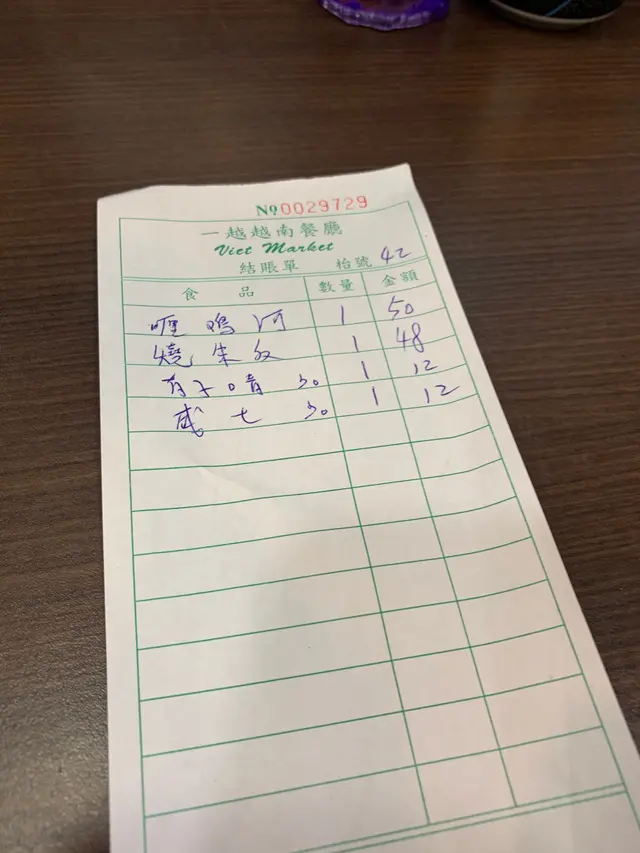 No 0029729
一越越南餐廳
Viet Market
結賬單 枱號 42
食品 數量 金額
喱鳴河 1 50
燒朱反 1 48
青子口青 20 1 12
咸七 20 1 12